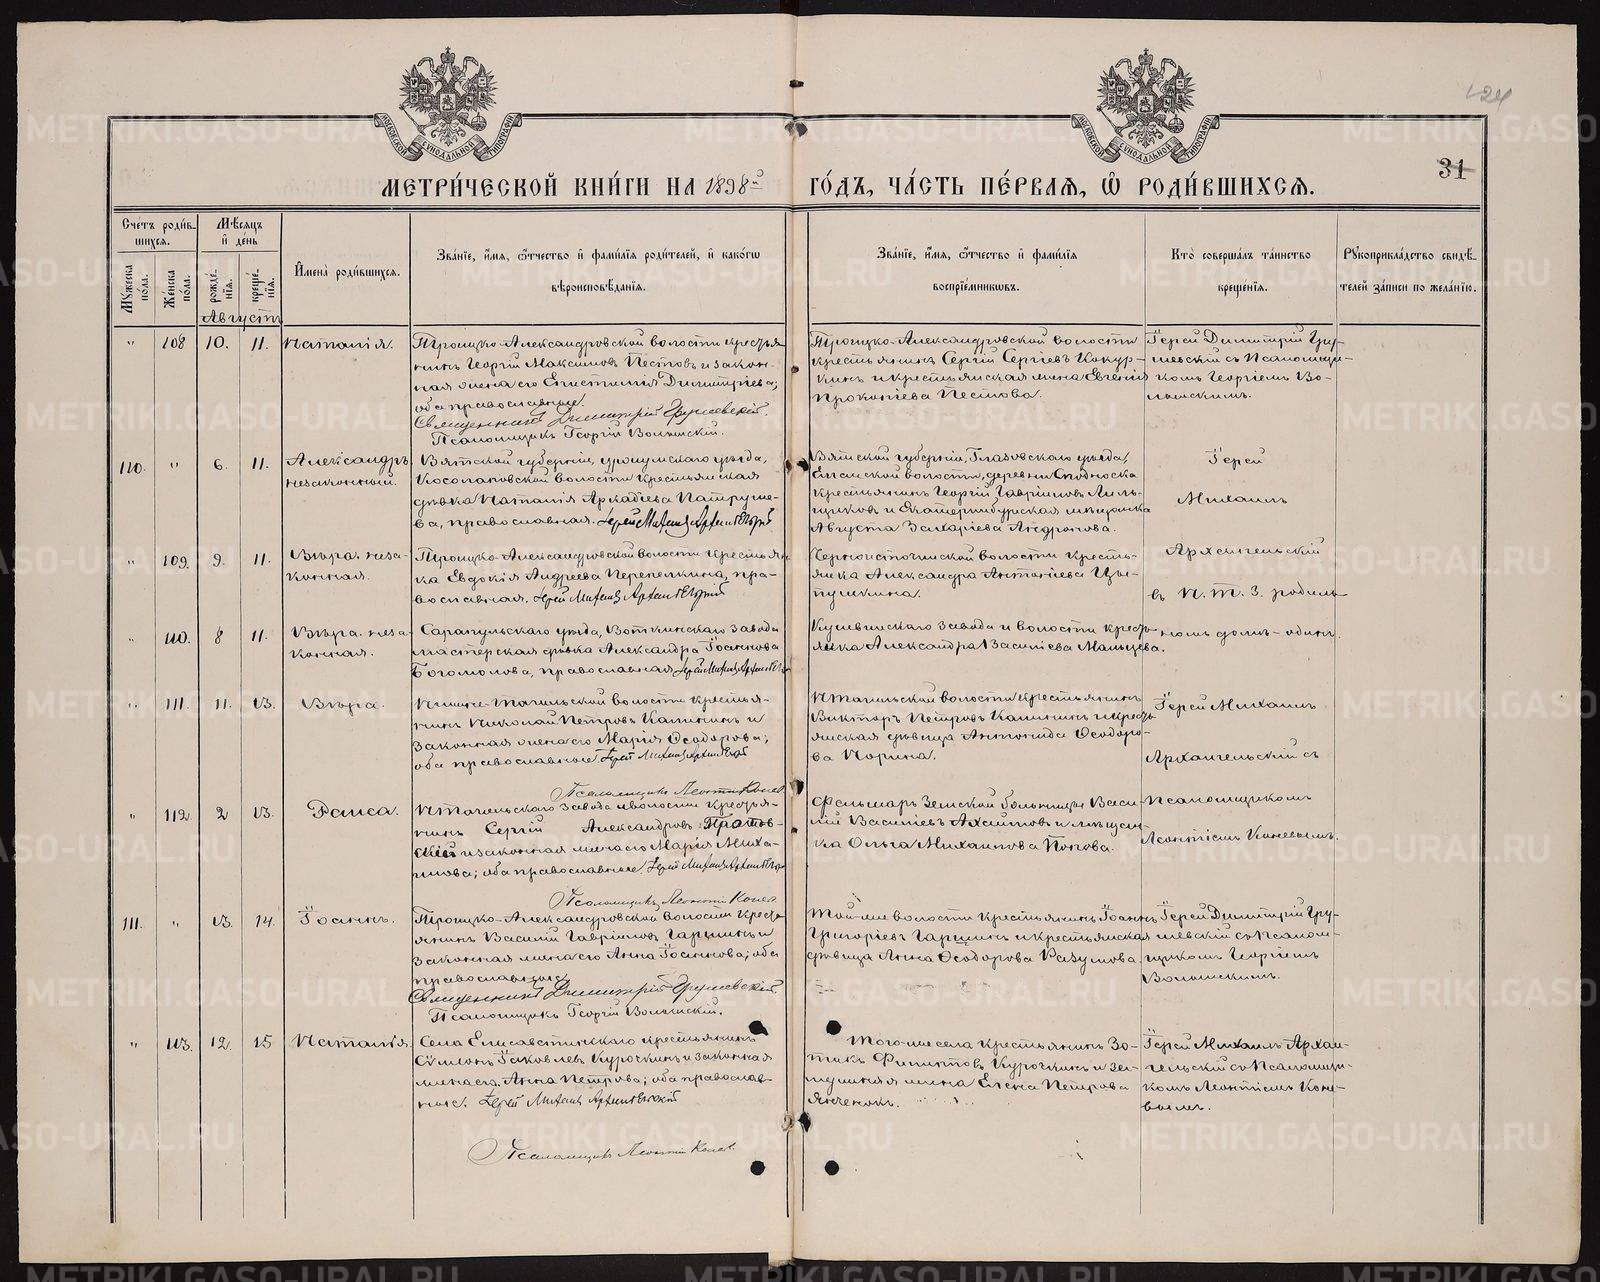 МОСКОВСКОЙ СѴНОДАЛЬНОЙ ТИПОГРАФІИ
МОСКОВСКОЙ СѴНОДАЛЬНОЙ ТИПОГРАФІИ
31
МЕТРИ́ЧЕСКОЙ КНИ́ГИ НА 1898й ГО́ДЪ, ЧА́СТЬ ПЕ́РВАЯ, Ѡ РОДИ́ВШИХСЯ.
Сче́тъ роди́в-
шихся.
Му́жеска по́ла.
Же́нска по́ла.
Мѣ́сяцъ и де́нь
рожде́-
нія.
креще́-
нія.
Имена̀ роди́вшихся.
Зва́ніе, и́мя, ѻ́тчество и фами́лія роди́телей, и како́гѡ
вѣроисповѣ́данія.
Зва́ніе, и́мя, ѻ́тчество и фами́лія
воспріе́мниковъ.
Кто̀ соверша́лъ та́инство
креще́нія.
Рукоприкла́дство свидѣ́-
телей за́писи по жела́нію.
Августъ
" 108 10. 11. Наталія.
Троицко-Александровской волости кресть-
янинъ Георгій Максимовъ Пестовъ и закон-
ная жена его Епистимія Димитріева;
оба православные.
Священникъ Димитрій Грушевскій.
Псаломщикъ Георгій Волынскій.
Троицко-Александровской волости
крестьянинъ Сергій Сергіевъ Кокур-
кинъ и крестьянская жена Евгенія
Прокопіева Пестова.
Іерей Димитрій Гру-
шевскій съ Псаломщи-
комъ Георгіемъ Во-
лынскимъ.
110. " 6. 11. Александръ
незаконный.
Вятской губерніи, Уржумскаго уѣзда,
Косолаповской волости крестьянская
дѣвка Наталія Аркадіева Патруше-
ва, православная. Іерей Михаилъ Архангельскій
Вятской губерніи, Глазовскаго уѣзда,
Елганской волости, деревни
крестьянинъ Георгій Гавріиловъ
и Екатеринбургская мѣщанка
Августа Захаріева Андронова.
Іерей
Михаилъ
" 109. 9. 11. Вѣра. неза-
конная.
Троицко-Александровской волости крестьян-
ка Евдокія Андреева Перепелкина, пра-
вославная. Іерей Михаилъ Архангельскій
Черноисточинской волости кресть-
янка Александра Антоніева Цы-
пушкина.
Архангельскій
въ Н. Т. З. родиль-
" 110. 8 11. Вѣра. неза-
конная.
Сарапульскаго уѣзда, Воткинскаго завода
мастерская дѣвка Александра Іоаннова
Богомолова, православная Іерей Михаилъ Архангельскій
Кушвинскаго завода и волости кресть-
янка Александра Васитіева Мальцева.
номъ домѣ - одинъ.
" 111. 11. 13. Вѣра.
Нижне-Тагильской волости крестья-
нинъ Николай Петровъ Калининъ и
законная жена его Марія Ѳеодорова;
оба православные Іерей Михаилъ Архангельскій
Псаломщикъ Леонтій Коневъ
НТагильской волости крестьянинъ
Викторъ Петровъ Калининъ и кресть-
янская дѣвица Антонида Ѳеодоро-
ва Норина.
Іерей Михаилъ
Архангельскій съ
" 112. 2 13. Раиса.
НТагильскаго завода и волости крестья-
нинъ Сергій Александровъ
и законная жена его Марія Миха-
илова; оба православные. Іерей Михаилъ Архангельскій
Псаломщикъ Леонтій Коневъ
Фельшаръ Земской больницы Васи-
лій Васитіевъ и мѣщан-
ка Ольга Михаилова Попова.
Псаломщикомъ
Леонтіемъ Коневымъ.
111. " 13. 14. Іоаннъ.
Троицко-Александровской волости кресть-
янинъ Василій Гавріиловъ Гаршинъ и
законная жена его Анна Іоаннова; оба
православные
Священникъ Димитрій Грушевскій.
Псаломщикъ Георгій Волынскій.
Той-же волости крестьянинъ Іоаннъ
Григоріевъ Гаршинъ и крестьянская
дѣвица Анна Ѳеодорова Разумова.
Іерей Димитрій Гру-
шевскій съ Псалом-
щикомъ Георгіемъ
Волынскимъ.
" 113. 12. 15 Наталія
Села Елисаветинскаго крестьянинъ
Сѵмеонъ Іаковлевъ Курочкинъ и законная
жена его Анна Петрова; оба православ-
ные. Іерей Михаилъ Архангельскій
Псаломщикъ Леонтій Коневъ.
Того-же села крестьянинъ Зо-
тикъ Филитовъ Курочкинъ и
жена Елена Петрова
Іерей Михаилъ Архан-
гельскій съ Псаломщи-
комъ Леонтіемъ Коне-
вымъ.